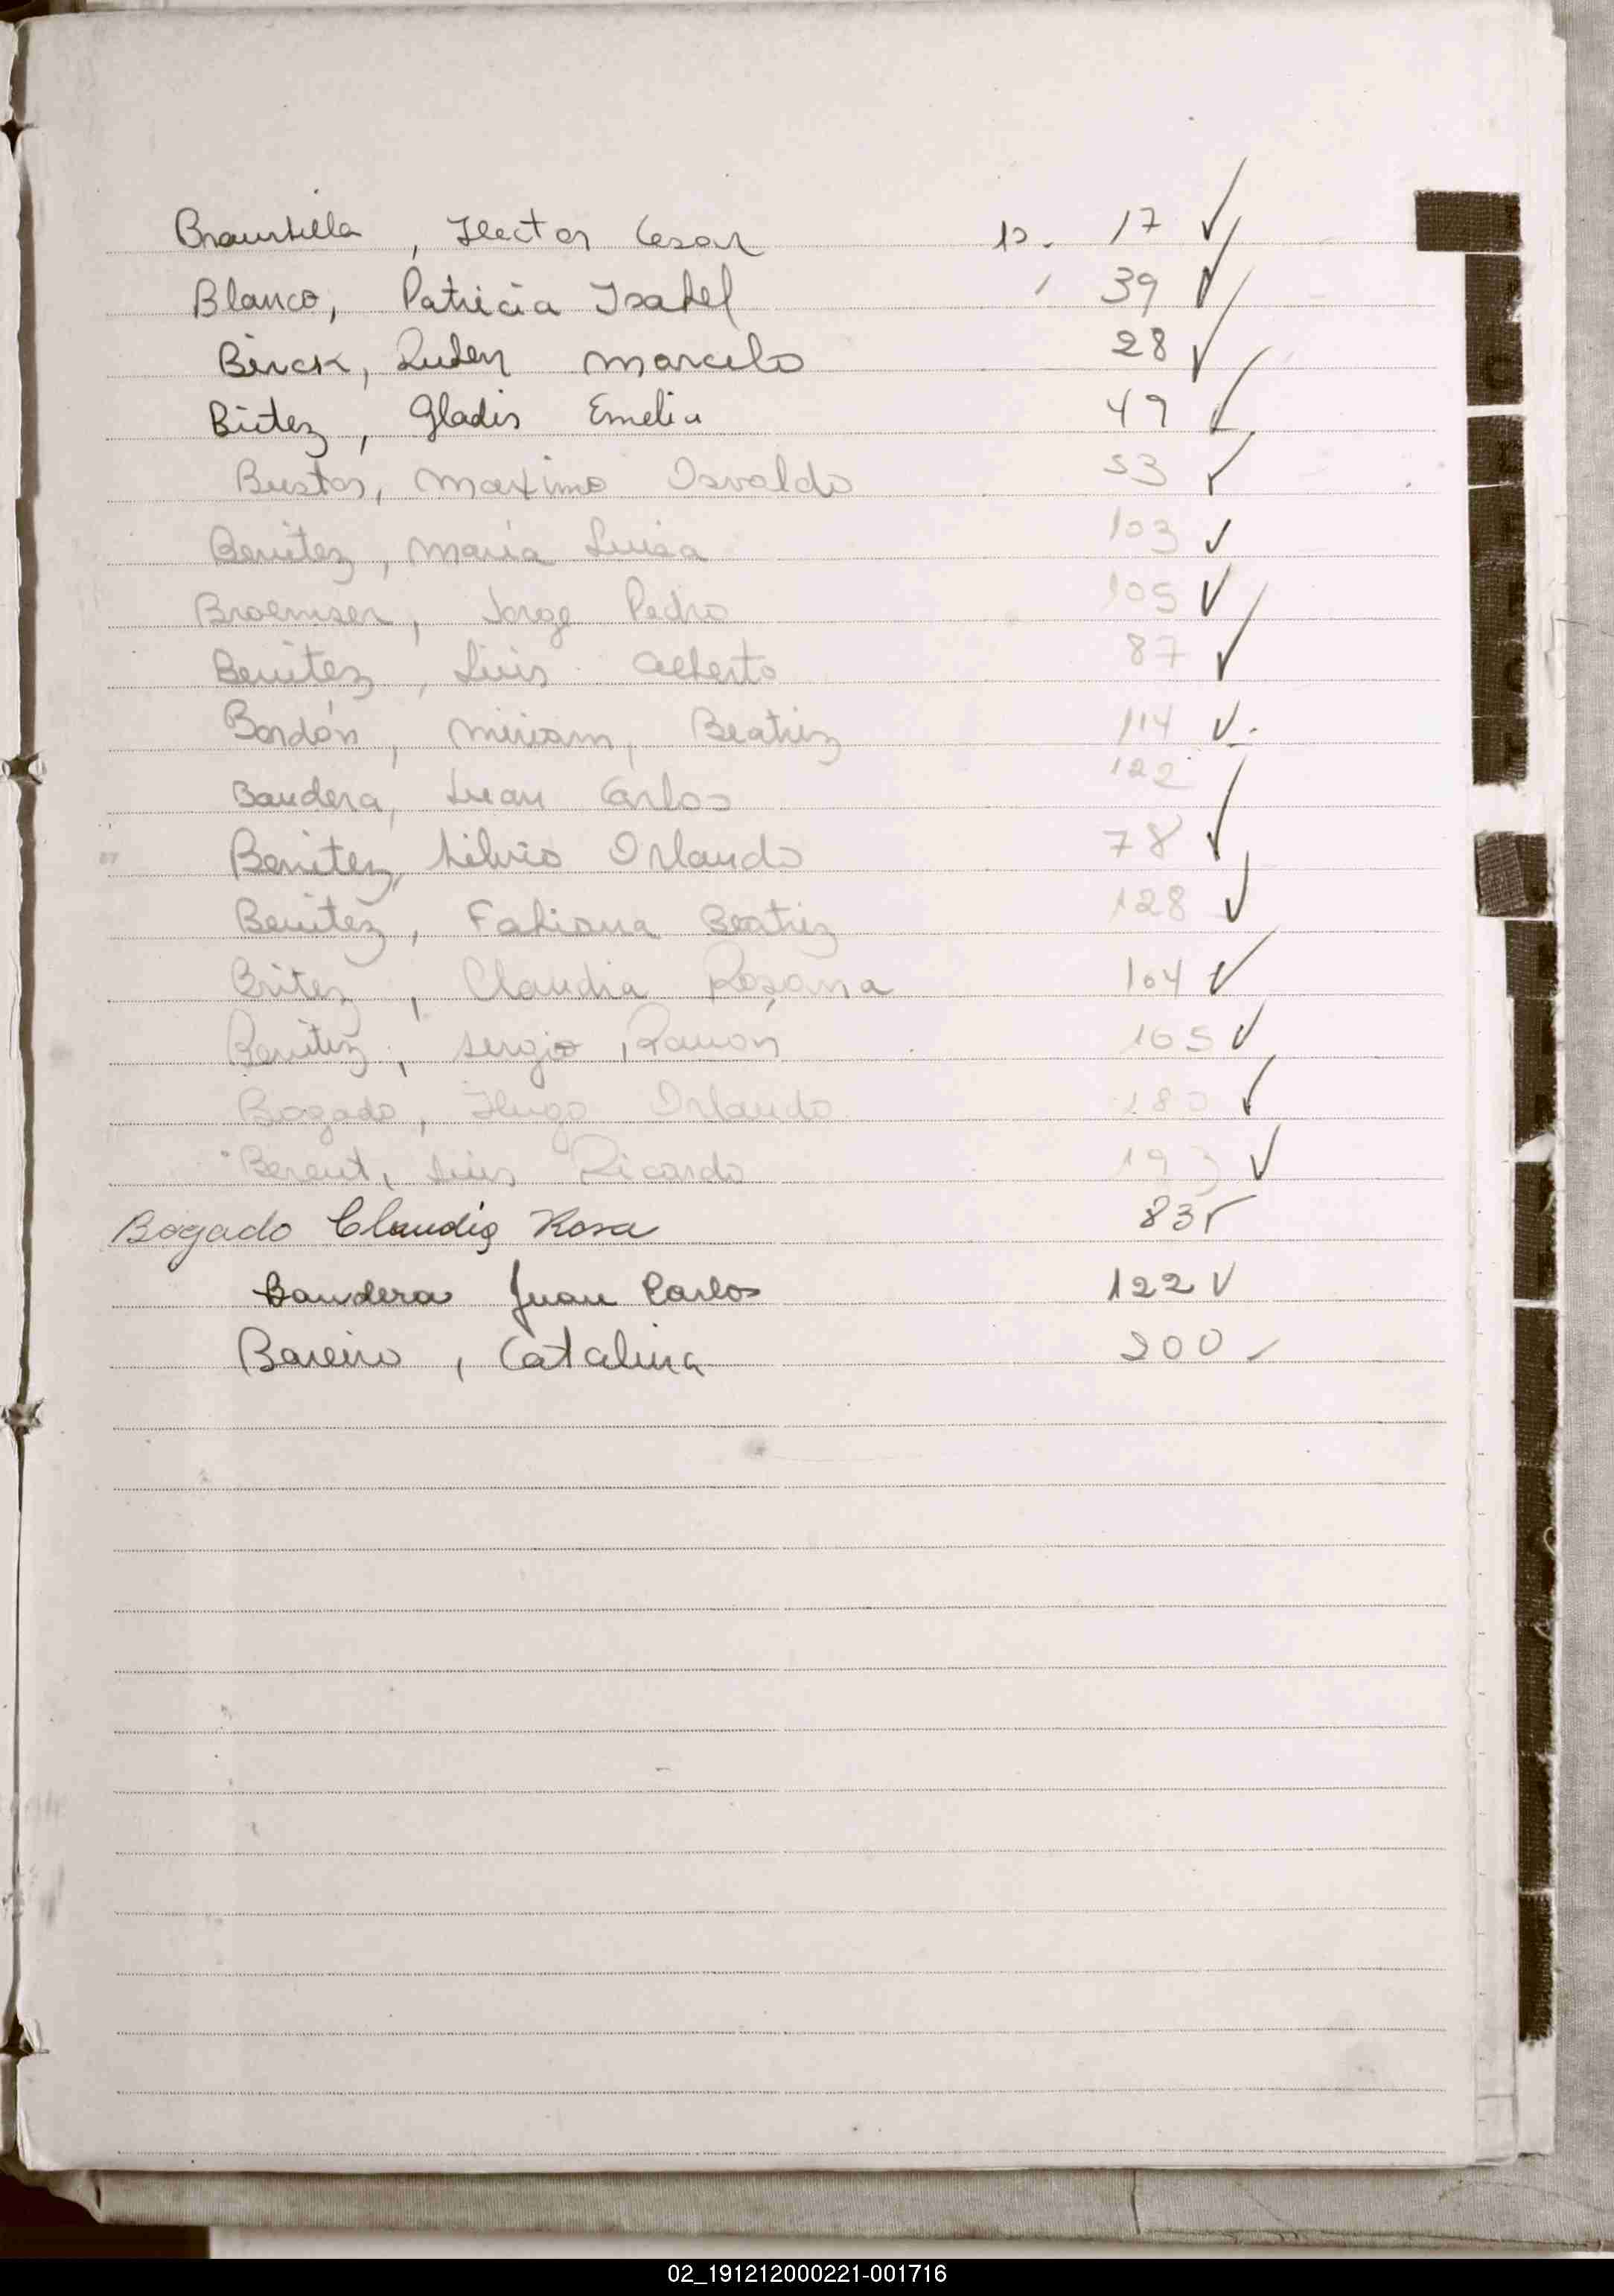 Braunhilla, Hector Cesar p. 17 ✓
Blanco, Patricia Isabel 39 ✓
Birck, Ruben Marcelo 28 ✓
Britez, Gladis Emelia 49 ✓
Bustos, Maximo Osvaldo 53 ✓
Benitez, Maria Luisa 103 ✓
Broemser, Jorge Pedro 105 ✓
Benitez, Luis Alberto 87 ✓
Bordón, Miriam, Beatriz 114 ✓.
Bandera, Juan Carlos 122
Benitez, Silvio Orlando 78 ✓
Benitez, Fabiana Beatriz 128 ✓
Britez, Claudia Rosana 104 ✓
Benitez, Sergio Ramon 165 ✓
Bogado, Hugo Orlando 180 ✓
Berent, Luis Ricardo 193 ✓
Bogado Claudia Rosa 83 ✓
Bandera Juan Carlos 122 ✓
Bareiro, Catalina 200 ✓
02_191212000221-001716